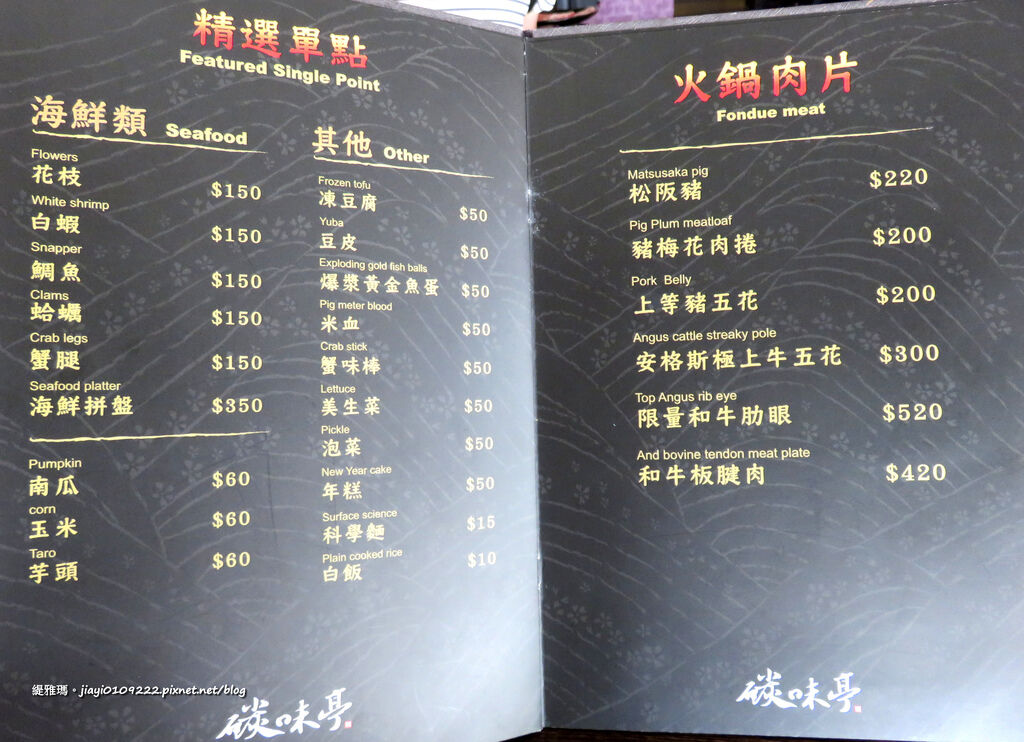 精選單點
Featured Single Point
海鮮類 Seafood
Flowers
花枝 $150
White shrimp
白蝦 $150
Snapper
鯛魚 $150
Clams
蛤蠣 $150
Crab legs
蟹腿 $150
Seafood platter
海鮮拼盤 $350
Pumpkin
南瓜 $60
corn
玉米 $60
Taro
芋頭 $60
其他 Other
Frozen tofu
凍豆腐 $50
Yuba
豆皮 $50
Exploding gold fish balls
爆漿黃金魚蛋 $50
Pig meter blood
米血 $50
Crab stick
蟹味棒 $50
Lettuce
美生菜 $50
Pickle
泡菜 $50
New Year cake
年糕 $50
Surface science
科學麵 $15
Plain cooked rice
白飯 $10
緹雅瑪。jiayi0109222.pixnet.net/blog
碳味亭
火鍋肉片
Fondue meat
Matsusaka pig
松阪豬 $220
Pig Plum meatloaf
豬梅花肉捲 $200
Pork Belly
上等豬五花 $200
Angus cattle streaky pole
安格斯極上牛五花 $300
Top Angus rib eye
限量和牛肋眼 $520
And bovine tendon meat plate
和牛板腱肉 $420
碳味亭